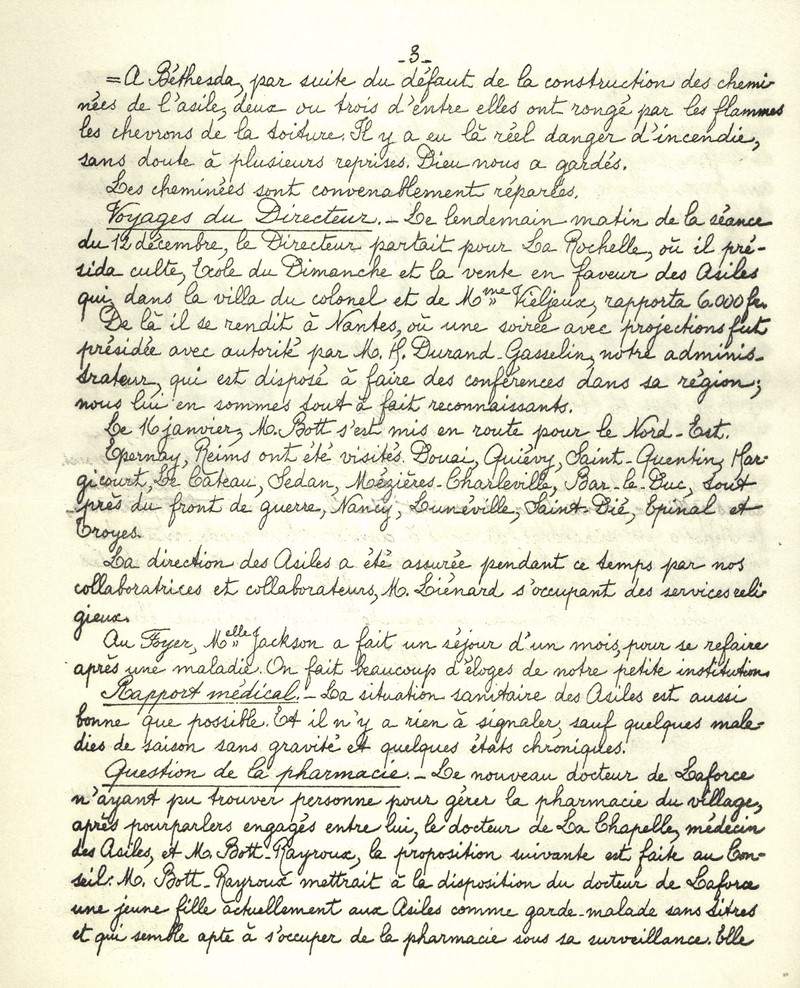 -3-
=A Béthesda, par suite du défaut de la construction des chemi-
nées de l'asile, deux ou trois d'entre elles ont rongé par les flammes
les chevrons de la toiture. Il y a eu là réel danger d'incendie,
sans doute à plusieurs reprises. Dieu nous a gardés.
Les cheminées sont convenablement réparées.
Voyages du Directeur.- Le lendemain matin de la séance
du 12 décembre, le Directeur partait pour La Rochelle, où il pré-
sida culte, Ecole du Dimanche et la vente en faveur des Asiles
qui, dans la villa du colonel et de Mme Vieljeux, rapporta 6.000 frs.
De là il se rendit à Nantes, où une soirée avec projections fut
présidée avec autorité par M. H. Durand-Gasselin, notre adminis-
trateur, qui est disposé à faire des conférences dans sa région;
nous lui en sommes tout à fait reconnaissants.
Le 16 janvier, M. Bott s'est mis en route pour le Nord-Est.
Epernay, Reims ont été visités. Douai, Quiévy, Saint-Quentin, Har-
gicourt, Le Câteau, Sedan, Mézières-Charleville, Bar-le-Duc, tout
près du front de guerre, Nancy, Lunéville, Saint-Dié, Epinal et
Troyes.
La direction des Asiles a été assurée pendant ce temps par nos
collaboratrices et collaborateurs, M. Liénard s'occupant des services reli
gieux.
Au Foyer, Melle Jackson a fait un séjour d'un mois, pour se refaire
après une maladie. On fait beaucoup d'éloges de notre petite institution.
Rapport médical.- La situation sanitaire des Asiles est aussi
bonne que possible. Et il n'y a rien à signaler, sauf quelques mala-
dies de saison sans gravité et quelques états chroniques.
Question de la pharmacie.- Le nouveau docteur de Laforce
n'ayant pu trouver personne pour gérer la pharmacie du village,
après pourparlers engagés entre lui, le docteur de La Chapelle, médecin
des Asiles, et M. Bott-Rayroux, la proposition suivante est faite au Con-
seil: M. Bott-Rayroux mettrait à la disposition du docteur de Laforce
une jeune fille actuellement aux Asiles comme garde-malade sans titres
et qui semble apte à s'occuper de la pharmacie sous sa surveillance. Elle